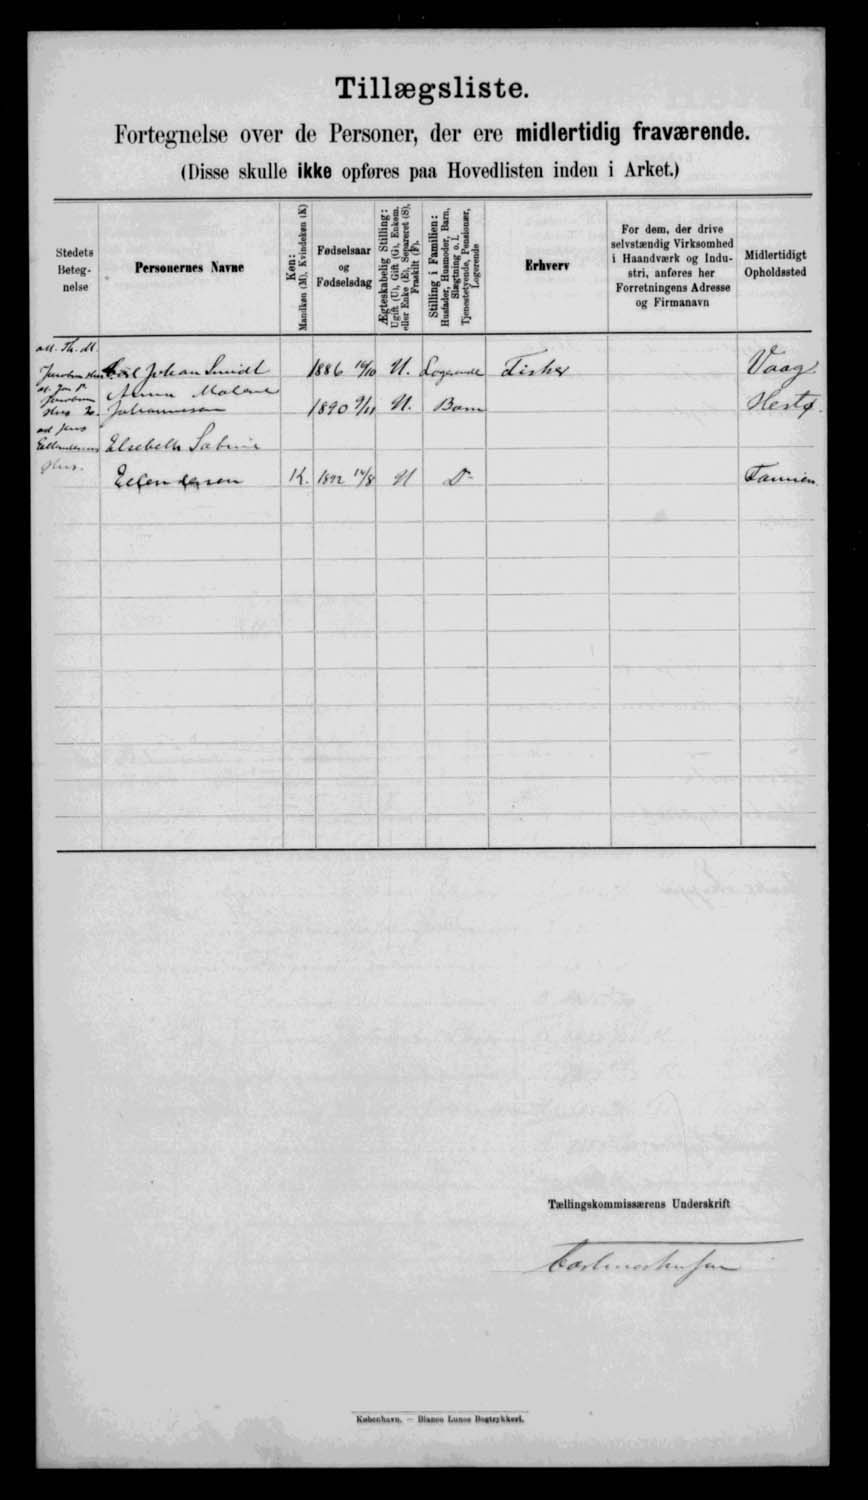 Tillægsliste.
Fortegnelse over de Personer, der ere midlertidig fraværende.
(Disse skulle ikke opføres paa Hovedlisten inden i Arket.)
Stedets
Beteg-
nelse
Personernes Navne
Køn:
Mandkøn (M), Kvindekøn (K)
Fødselsaar
og
Fødselsdag
Ægteskabelig Stilling:
Ugift (U), Gift (G), Enkem.
eller Enke (E), Separeret (S),
Fraskilt (F).
Stilling i Familien:
Husfader, Husmoder, Barn,
Slægtning o. l.
Tjenestetyende, Pensionær,
Logerende
Erhverv
For dem, der drive
selvstændig Virksomhed
i Haandværk og Indu-
stri, anføres her
Forretningens Adresse
og Firmanavn
Midlertidigt
Opholdssted
Johan Smidt 1886 14/10 U. Logerende Fisker Vaag
Anna Malene
Johannesen 1890 9/11 U. Barn Hestø.
Elsebeth Sabine
Ellendersen K. 1892 14/8 U D-
Tællingskommissærens Underskrift
København. — Bianco Lunos Bogtrykkeri.